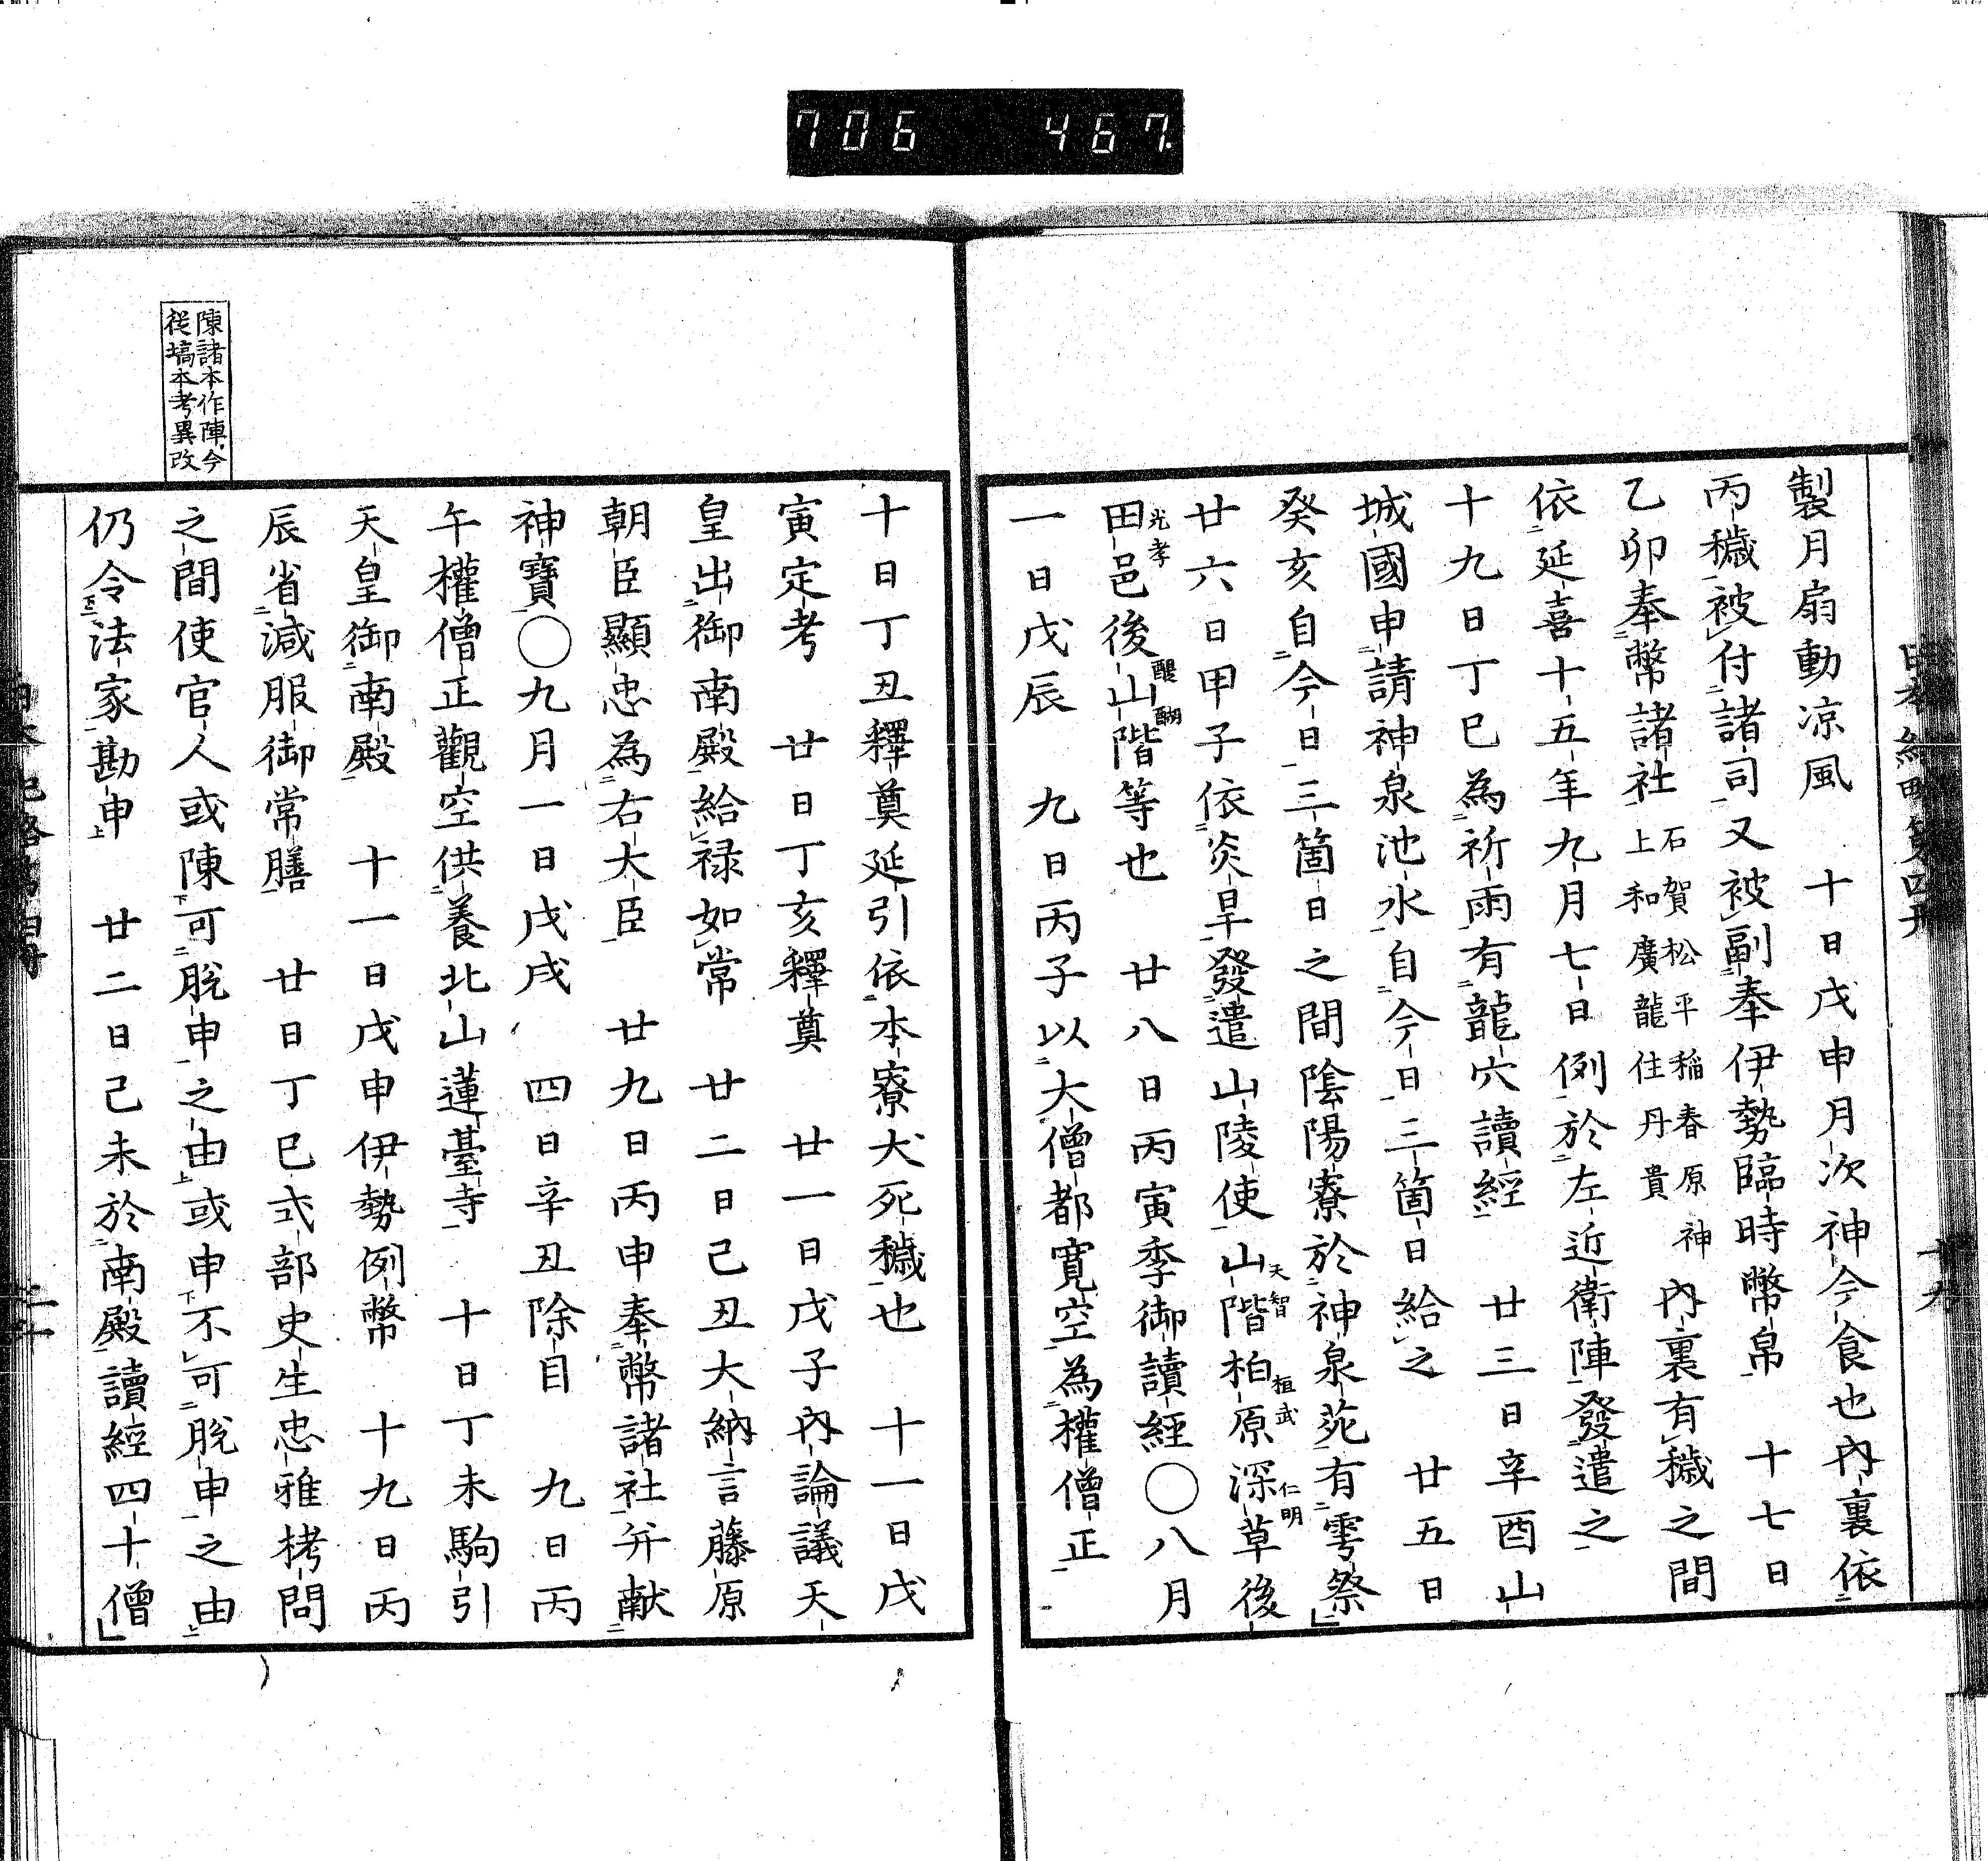 706 467.
製月扇動凉風　十日戊申月次神今食也内裏依
丙穢被付諸司又被副奉伊勢臨時幣帛　十七日
乙卯奉幣諸社石賀松平稲春原神上和廣龍住丹貴内裏有穢之間
依延喜十五年九月七日例於左近衛陣發遣之
十九日丁巳為祈雨有龍穴讀經　廿三日辛酉山
城國申請神泉池水自今日三箇日給之　廿五日
癸亥自今日三箇日之間陰陽寮於神泉苑有雩祭
廿六日甲子依炎旱發遣山陵使山階天智柏原桓武深草仁明後
田邑光孝後山階醍醐等也　廿八日丙寅季御讀經○八月
一日戊辰　九日丙子以大僧都寛空為權僧正
陳諸本作陣今
從塙本考異改
十日丁丑釋奠延引依本寮犬死穢也　十一日戊
寅定考　廿日丁亥釋奠　廿一日戊子内論議天
皇出御南殿給禄如常　廿二日己丑大納言藤原
朝臣顯忠為右大臣　廿九日丙申奉幣諸社并献
神寶○九月一日戊戌　四日辛丑除目　九日丙
午權僧正觀空供養北山蓮臺寺　十日丁未駒引
天皇御南殿　十一日戊申伊勢例幣　十九日丙
辰省減服御常膳　廿日丁巳式部史生忠雅拷問
之間使官人或陳可脱申之由或申不可脱申之由
仍令法家勘申　廿二日己未於南殿讀經四十僧